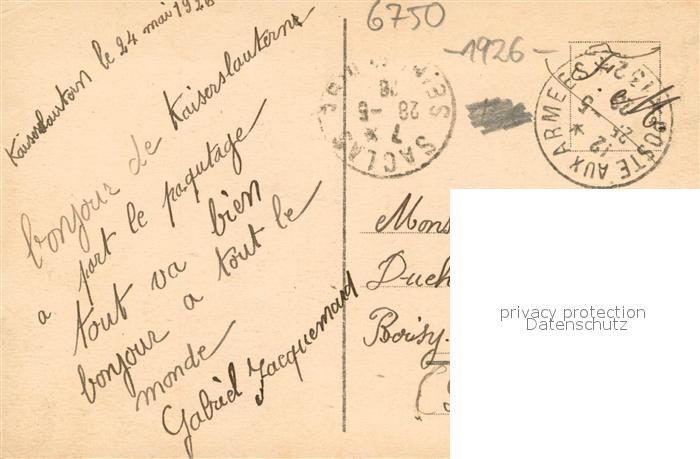 Kaiserslautern le 24 mai 1926
bonjour de Kaiserslautern
a part le paqutage
tout va bien
bonjour a tout le
monde
Gabriel Jacquemard
6750
-1926-
SACLAS
7 *
28 -5
26
POSTE AUX ARMEES
13 25
12 *
25 -5
F. M.
Mons
Duch
Boissy.
(S
privacy protection
Datenschutz